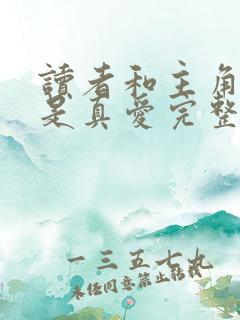 讀者和主角
是真愛完整
一三五七九
未经同意禁止转载